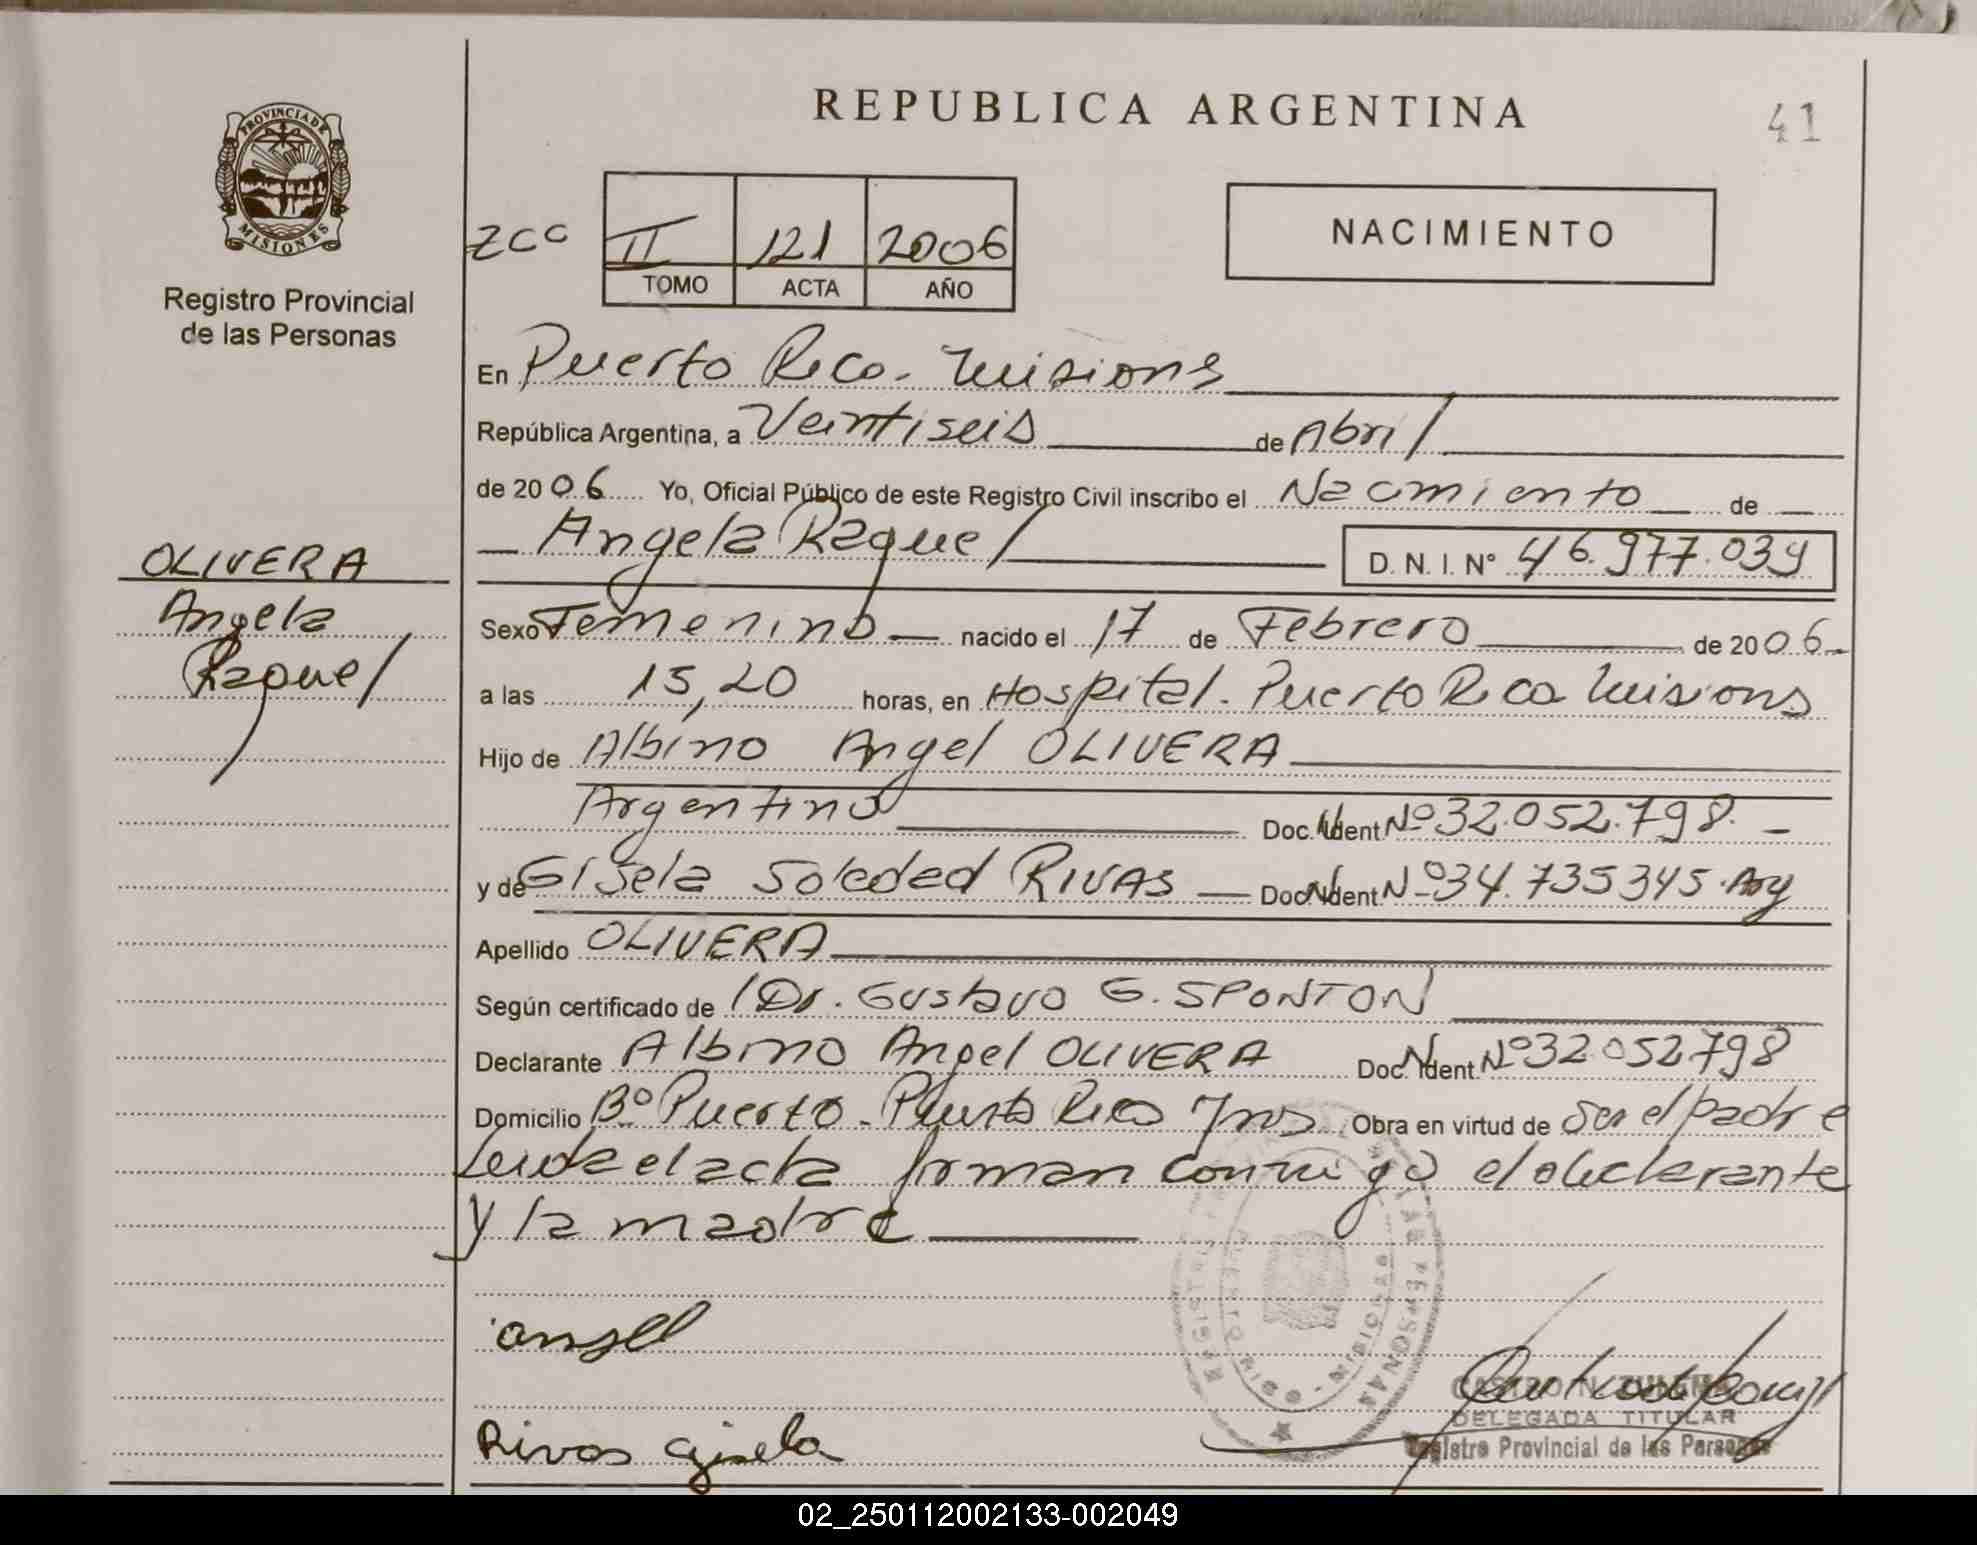 PROVINCIA DE
MISIONES
Registro Provincial
de las Personas
OLIVERA
Angela
Raquel
REPUBLICA ARGENTINA
41
ZCC II 121 2006
TOMO ACTA AÑO
NACIMIENTO
En Puerto Rico. Misiones
República Argentina, a Veintiseis de Abril
de 2006 Yo, Oficial Público de este Registro Civil inscribo el Nacimiento de
Angela Raquel D. N. I. Nº 46.977.039
Sexo Femenino nacido el 17 de Febrero de 2006
a las 15,20 horas, en Hospital. Puerto Rico Misiones
Hijo de Albino Angel OLIVERA
Argentino Doc. Ident Nº 32.052.798.
y de Gisela Soledad RIVAS Doc Ident Nº 34.735345. Arg
Apellido OLIVERA
Según certificado de Dr. Gustavo G. SPONTON
Declarante Albino Angel OLIVERA Doc. Ident. Nº 32052798
Domicilio Bº Puerto. Puerto Rico Mnes Obra en virtud de ser el padre
Leida el acta firman conmigo el declarante
y la madre
Rivas Gisela
PUERTO RICO - MISIONES
DELEGADA TITULAR
Registro Provincial de las Personas
02_250112002133-002049